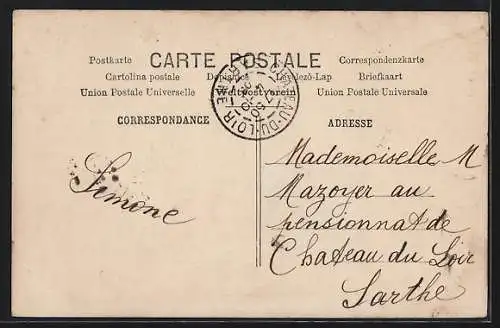 CARTE POSTALE
Postkarte Correspondenzkarte
Cartolina postale Dopisnice Levelező-Lap Briefkaart
Union Postale Universelle Weltpostverein Union Postale Universale
CHATEAU-DU-LOIR
SARTHE
CORRESPONDANCE ADRESSE
Simone
Mademoiselle M
Mazoyer au
pensionnat de
Chateau du Loir
Sarthe